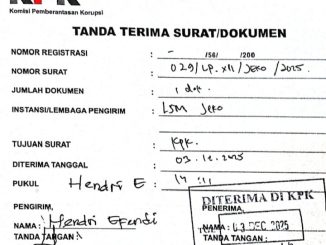 KPK
Komisi Pemberantasan Korupsi
TANDA TERIMA SURAT/DOKUMEN
NOMOR REGISTRASI : - /56/ /200
NOMOR SURAT : 029/LP.XII/Jeko/2025
JUMLAH DOKUMEN : 1 dok
INSTANSI/LEMBAGA PENGIRIM : LSM Jeko
TUJUAN SURAT : KPK.
DITERIMA TANGGAL : 03.12.2025
PUKUL : Hendri E 14
PENGIRIM, PENERIMA,
DITERIMA DI KPK
NAMA : Hendri Efendi NAMA : 03 DEC 2025
TANDA TANGAN : TANDA TANGAN :